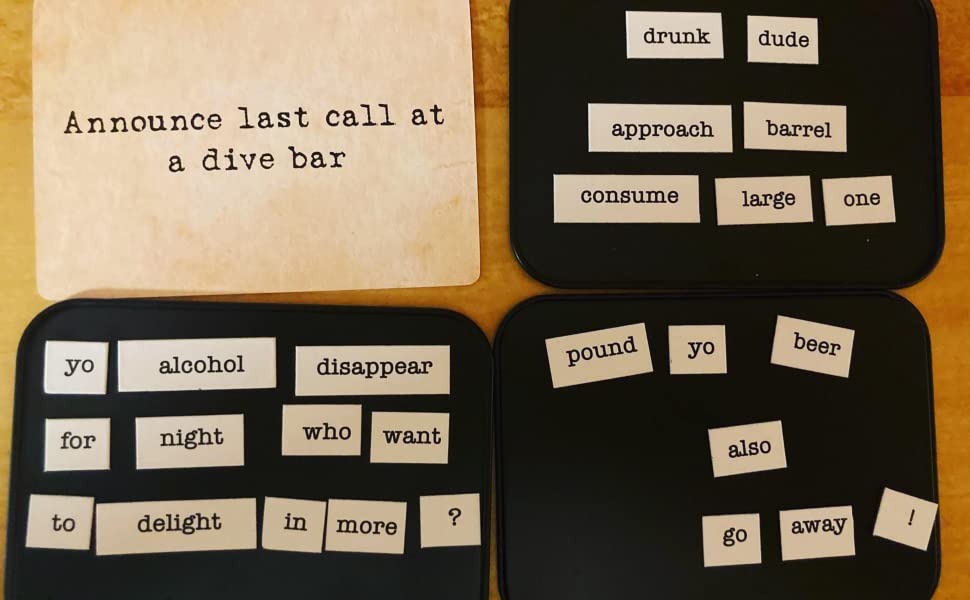 Announce last call at
a dive bar
drunk dude
approach barrel
consume large one
yo alcohol disappear
for night who want
to delight in more ?
pound yo beer
also
go away !